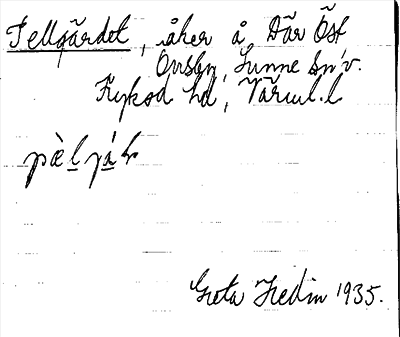 Tellgärdet, åker å Där Öst
Ovsby, Sunne sn, v.
Fryksd. hd, Värml. l
Greta Hedin 1935.